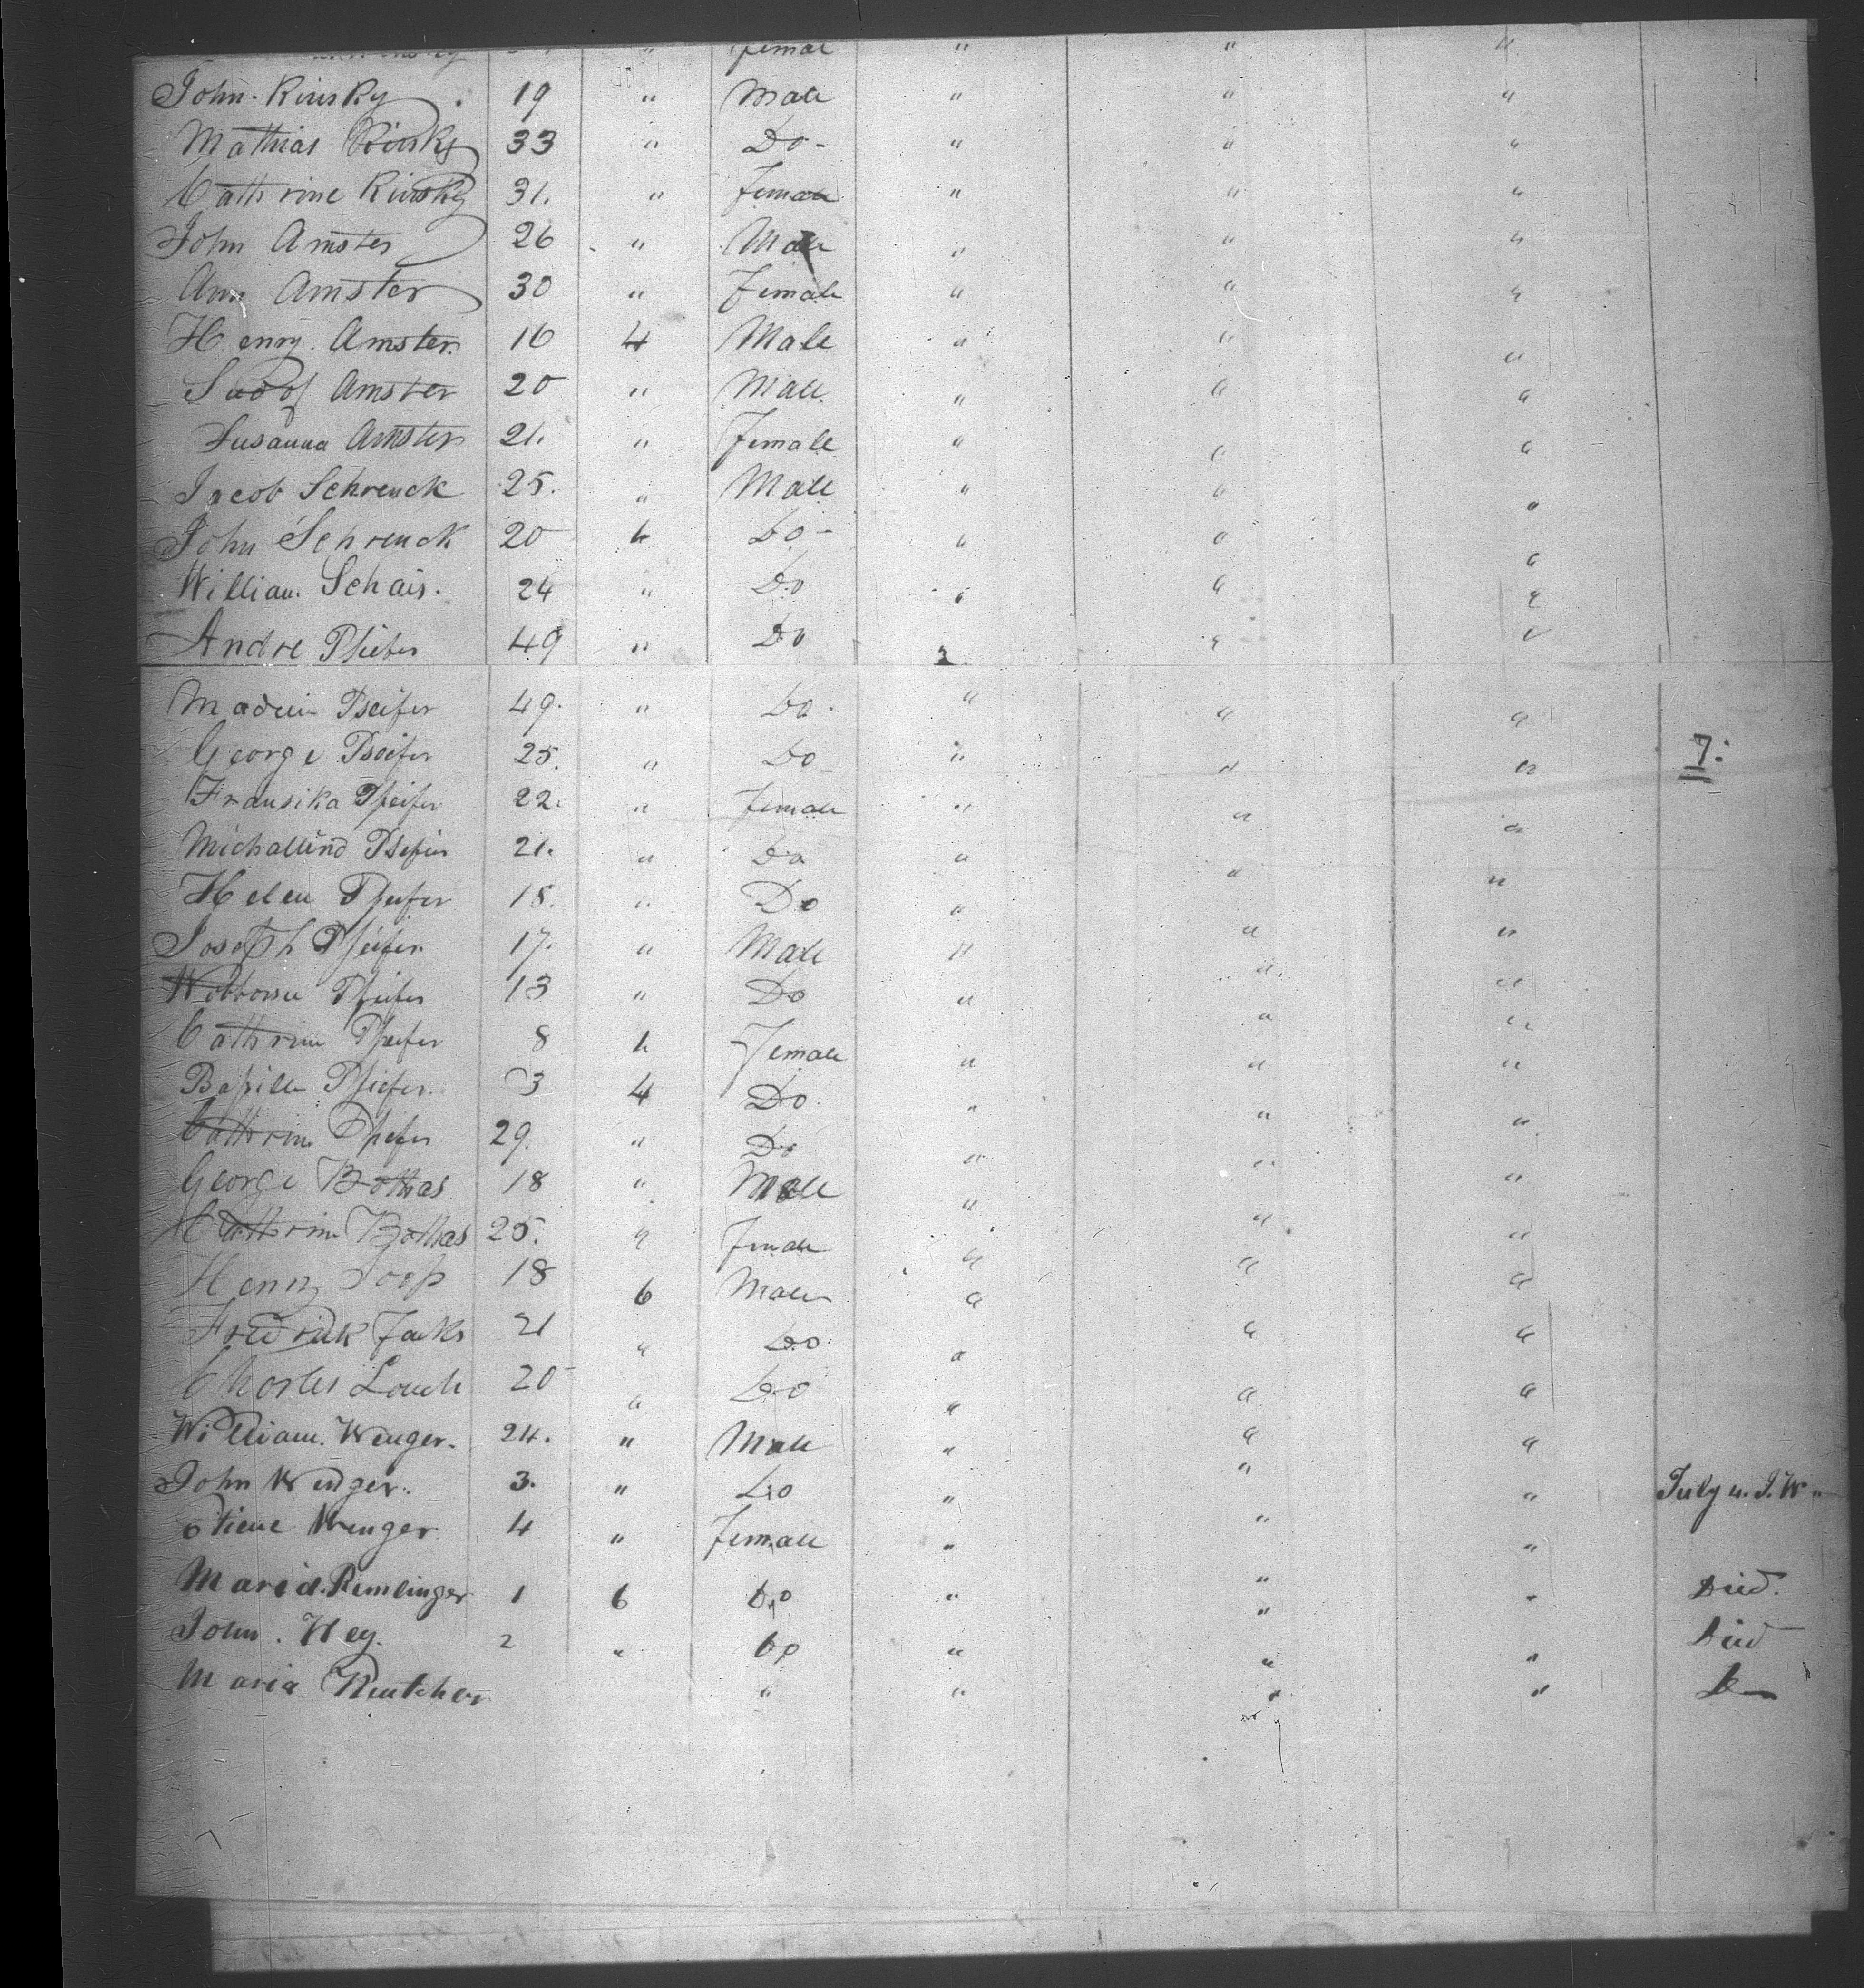 " Female " " "
John Rinsky 19 " Male " " "
Mathias Rinsky 33 " Do - " " "
Cathrine Rinsky 31. " Female " " "
John Amster 26 " Male " " "
Ann Amster 30 " Female " " "
Henry. Amster. 16 4 Male " " "
Amster 20 " Male. " " "
Susanna Amster 21. " Female " " "
Jacob Schrenck 25. " Male " " "
John Schrenck 20 Do - " " "
William. Schais. 24 " Do " " "
Andre Pfiefer 49 " Do " " "
Pfeifer 49. " Do. " " "
George Pfeifer 25. " Do " " " 7:
Fransika Pfeifer 22. " Female " " "
Pfeifer 21. " Do " " "
Helen Pfeifer 18. " Do " " "
Joseph Pfeifer 17. " Male " " "
Pfeifer 13 " Do " " "
Cathrine Pfeifer 8 Female " " "
Pfiefer. 3 4 Do " " "
Cathrine Pfiefer 29. " Do " " "
George Bothas 18 " Male " " "
Cathrine Bothas 25. " Female " " "
Henry 18 6 Male " " "
Fredrick 21 " Do " " "
Charles 20 " Do " " "
William. Wenger. 24. " Male " " "
John Wenger. 3. " Do " " " July
Wenger 4 " Female " " "
Remlinger 1 6 Do " " " Died.
John. Hey. 2 " Do " " " Died
Maria " " " "